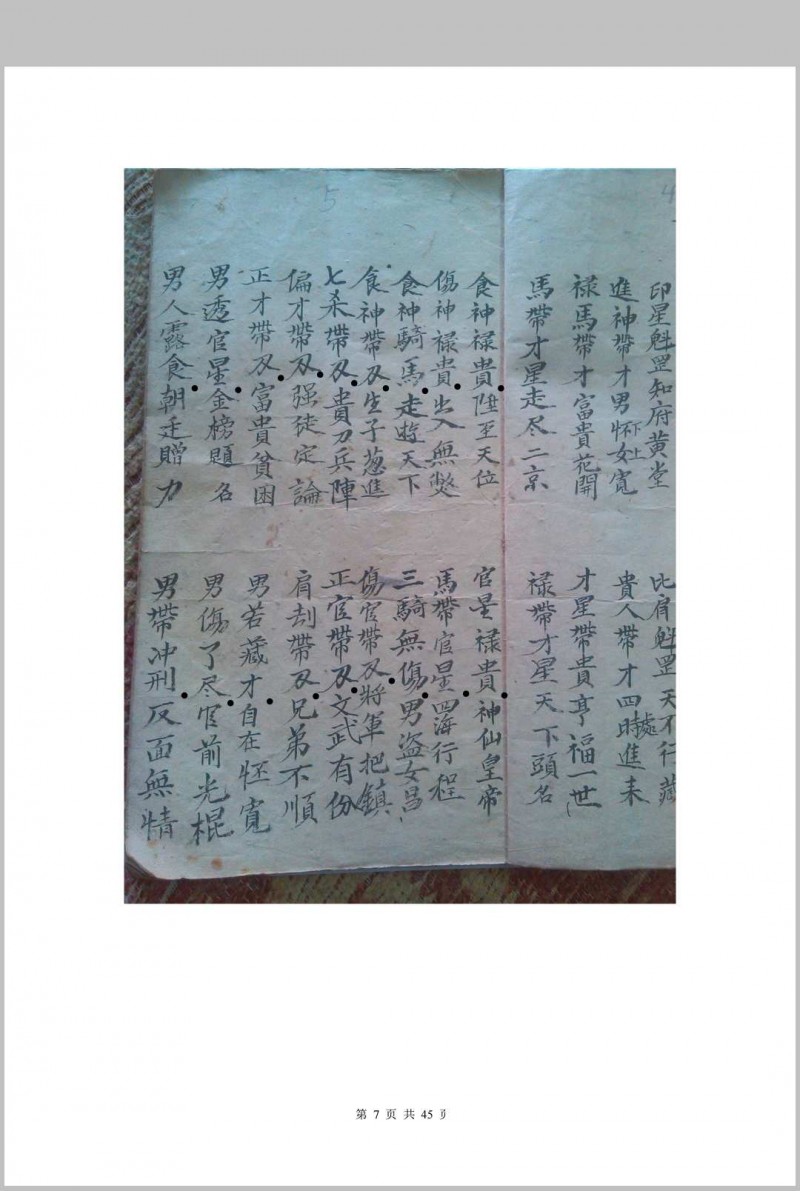 4
印星魁罡知府黄堂
比肩魁罡天不行藏
進神帶才男怀女寬
下上
貴人帶才四時進来
處
禄馬帶才富貴花開
才星帶貴亨福一世
馬帶才星走尽二京
禄帶才星天下頭名
5
食神禄貴陞至天位
官星禄貴神仙皇帝
傷神禄貴出入無獘
馬帶官星四海行程
食神騎馬走遊天下
三騎無傷男盗女昌
食神帶刄生子葱進
傷官帶刄將軍把鎮
七杀帶刄貴刀兵陣
正官帶刄文武有份
偏才帶刄强徒定論
肩刦帶刄兄弟不順
正才帶刄富貴貧困
男若藏才自在怌寬
男透官星金榜題名
男傷了尽官前光棍
男人露食朝廷贈力
男帶冲刑反面無情
第 7 页 共 45 页